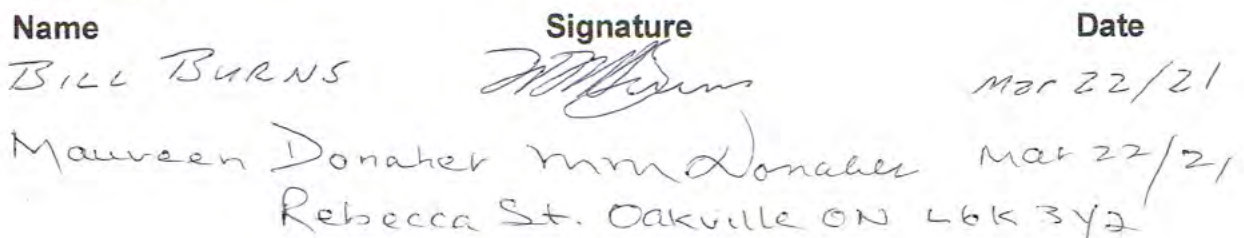 Name Signature Date
BILL BURNS WM Burns Mar 22/21
Maureen Donaher MM Donaher Mar 22/21
Rebecca St. Oakville ON L6K 3Y2